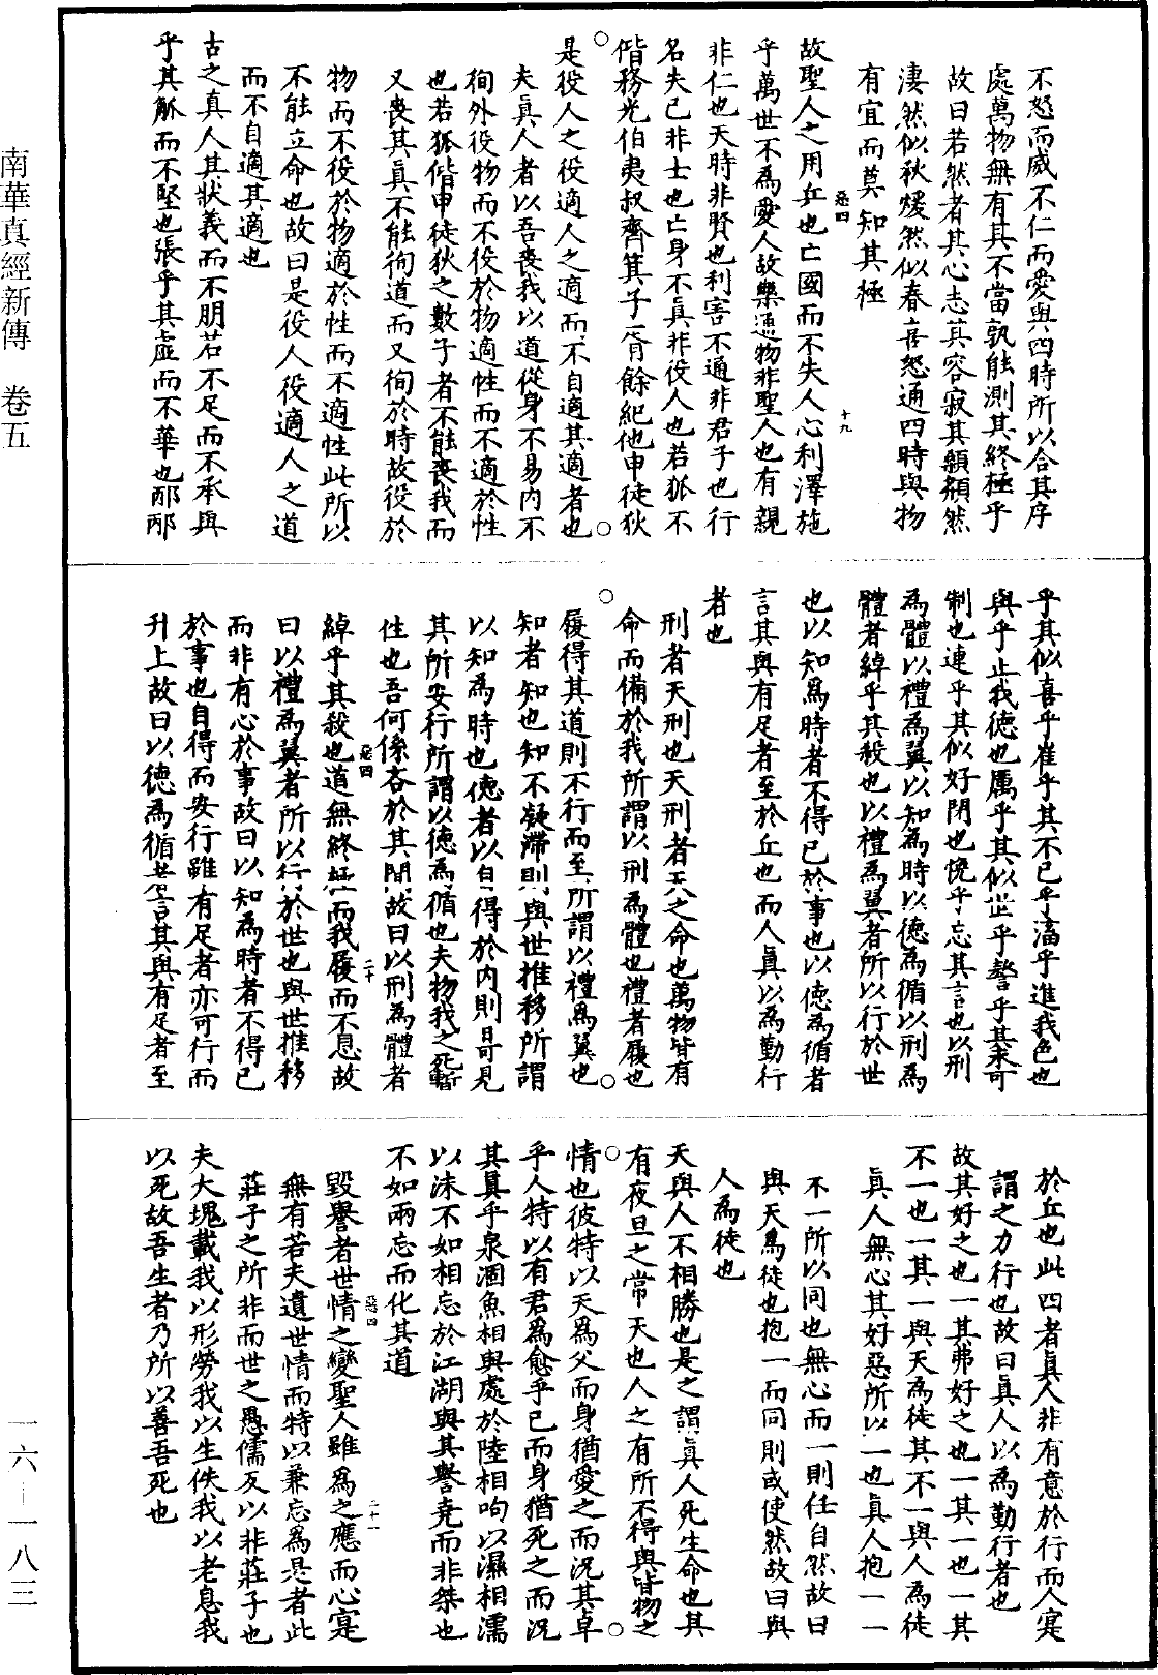 不怒而威不仁而愛與四時所以合其序
處萬物無有其不當孰能測其終極乎
故曰若然者其心志其容寂其顙頯然
淒然似秋煖然似春喜怒通四時與物
有宜而莫知其極
故聖人之用兵也亡國而不失人心利澤施
乎萬世不為愛人故樂通物非聖人也有親
非仁也天時非賢也利害不通非君子也行
名失已非士也亡身不真非役人也若狐不
偕務光伯夷叔齊箕子胥餘紀他申徒狄
是役人之役適人之適而不自適其適者也
夫真人者以吾喪我以道從身不易內不
徇外役物而不役於物適性而不適於性
也若狐偕申徒狄之數子者不能喪我而
又喪其真不能徇道而又徇於時故役於
物而不役於物適於性而不適性此所以
不能立命也故曰是役人役適人之道
而不自適其適也
古之真人其狀義而不朋若不足而不承與
乎其觚而不堅也張乎其虛而不華也邴邴
乎其似喜乎崔乎其不已乎滀乎進我色也
與乎止我德也厲乎其似世乎謷乎其未可
制也連乎其似好閉也悗乎忘其言也以刑
為體以禮為翼以知為時以德為循以刑為
體者綽乎其殺也以禮為翼者所以行於世
也以知為時者不得已於事也以德為循者
言其與有足者至於丘也而人真以為勤行
者也
刑者天刑也天刑者天之命也萬物皆有
命而備於我所謂以刑為體也禮者履也
履得其道則不行而至所謂以禮為翼也
知者知也知不凝滯則與世推移所謂
以知為時也德者以自得於內則可見
其所安行所謂以德為循也夫物我之暫
性也吾何係吝於其間故曰以刑為體者
綽乎其殺也道無終極而我履而不息故
曰以禮為翼者所以行於世也與世推移
而非有心於事故曰以知為時者不得已
於事也自得而安行雖有足者亦可行而
升上故曰以德為循者言其與有足者至
於丘也此四者真人非有意於行而人寔
謂之力行也故曰真人以為勤行者也
故其好之也一其弗好之也一其一也一其
不一也一其一與天為徒其不一與人為徒
真人無心其好惡所以一也真人抱一一
不一所以同也無心而一則任自然故曰
與天為徒也抱一而同則或使然故曰與
人為徒也
天與人不相勝也是之謂真人死生命也其
有夜旦之常天也人之有所不得與皆物之
情也彼特以天為父而身猶愛之而況其卓
乎人特以有君為愈乎已而身猶死之而況
其真乎泉涸魚相與處於陸相呴以濕相濡
以沫不如相忘於江湖與其譽堯而非桀也
不如兩忘而化其道
毀譽者世情之變聖人雖為之應而心寔
無有若夫遺世情而特以兼忘為是者此
莊子之所非而世之愚儒反以非莊子也
夫大塊載我以形勞我以生佚我以老息我
以死故吾生者乃所以善吾死也
惡四
十九
惡四
二十
惡四
二十一
南華真經新傳 卷五
一六—一八三